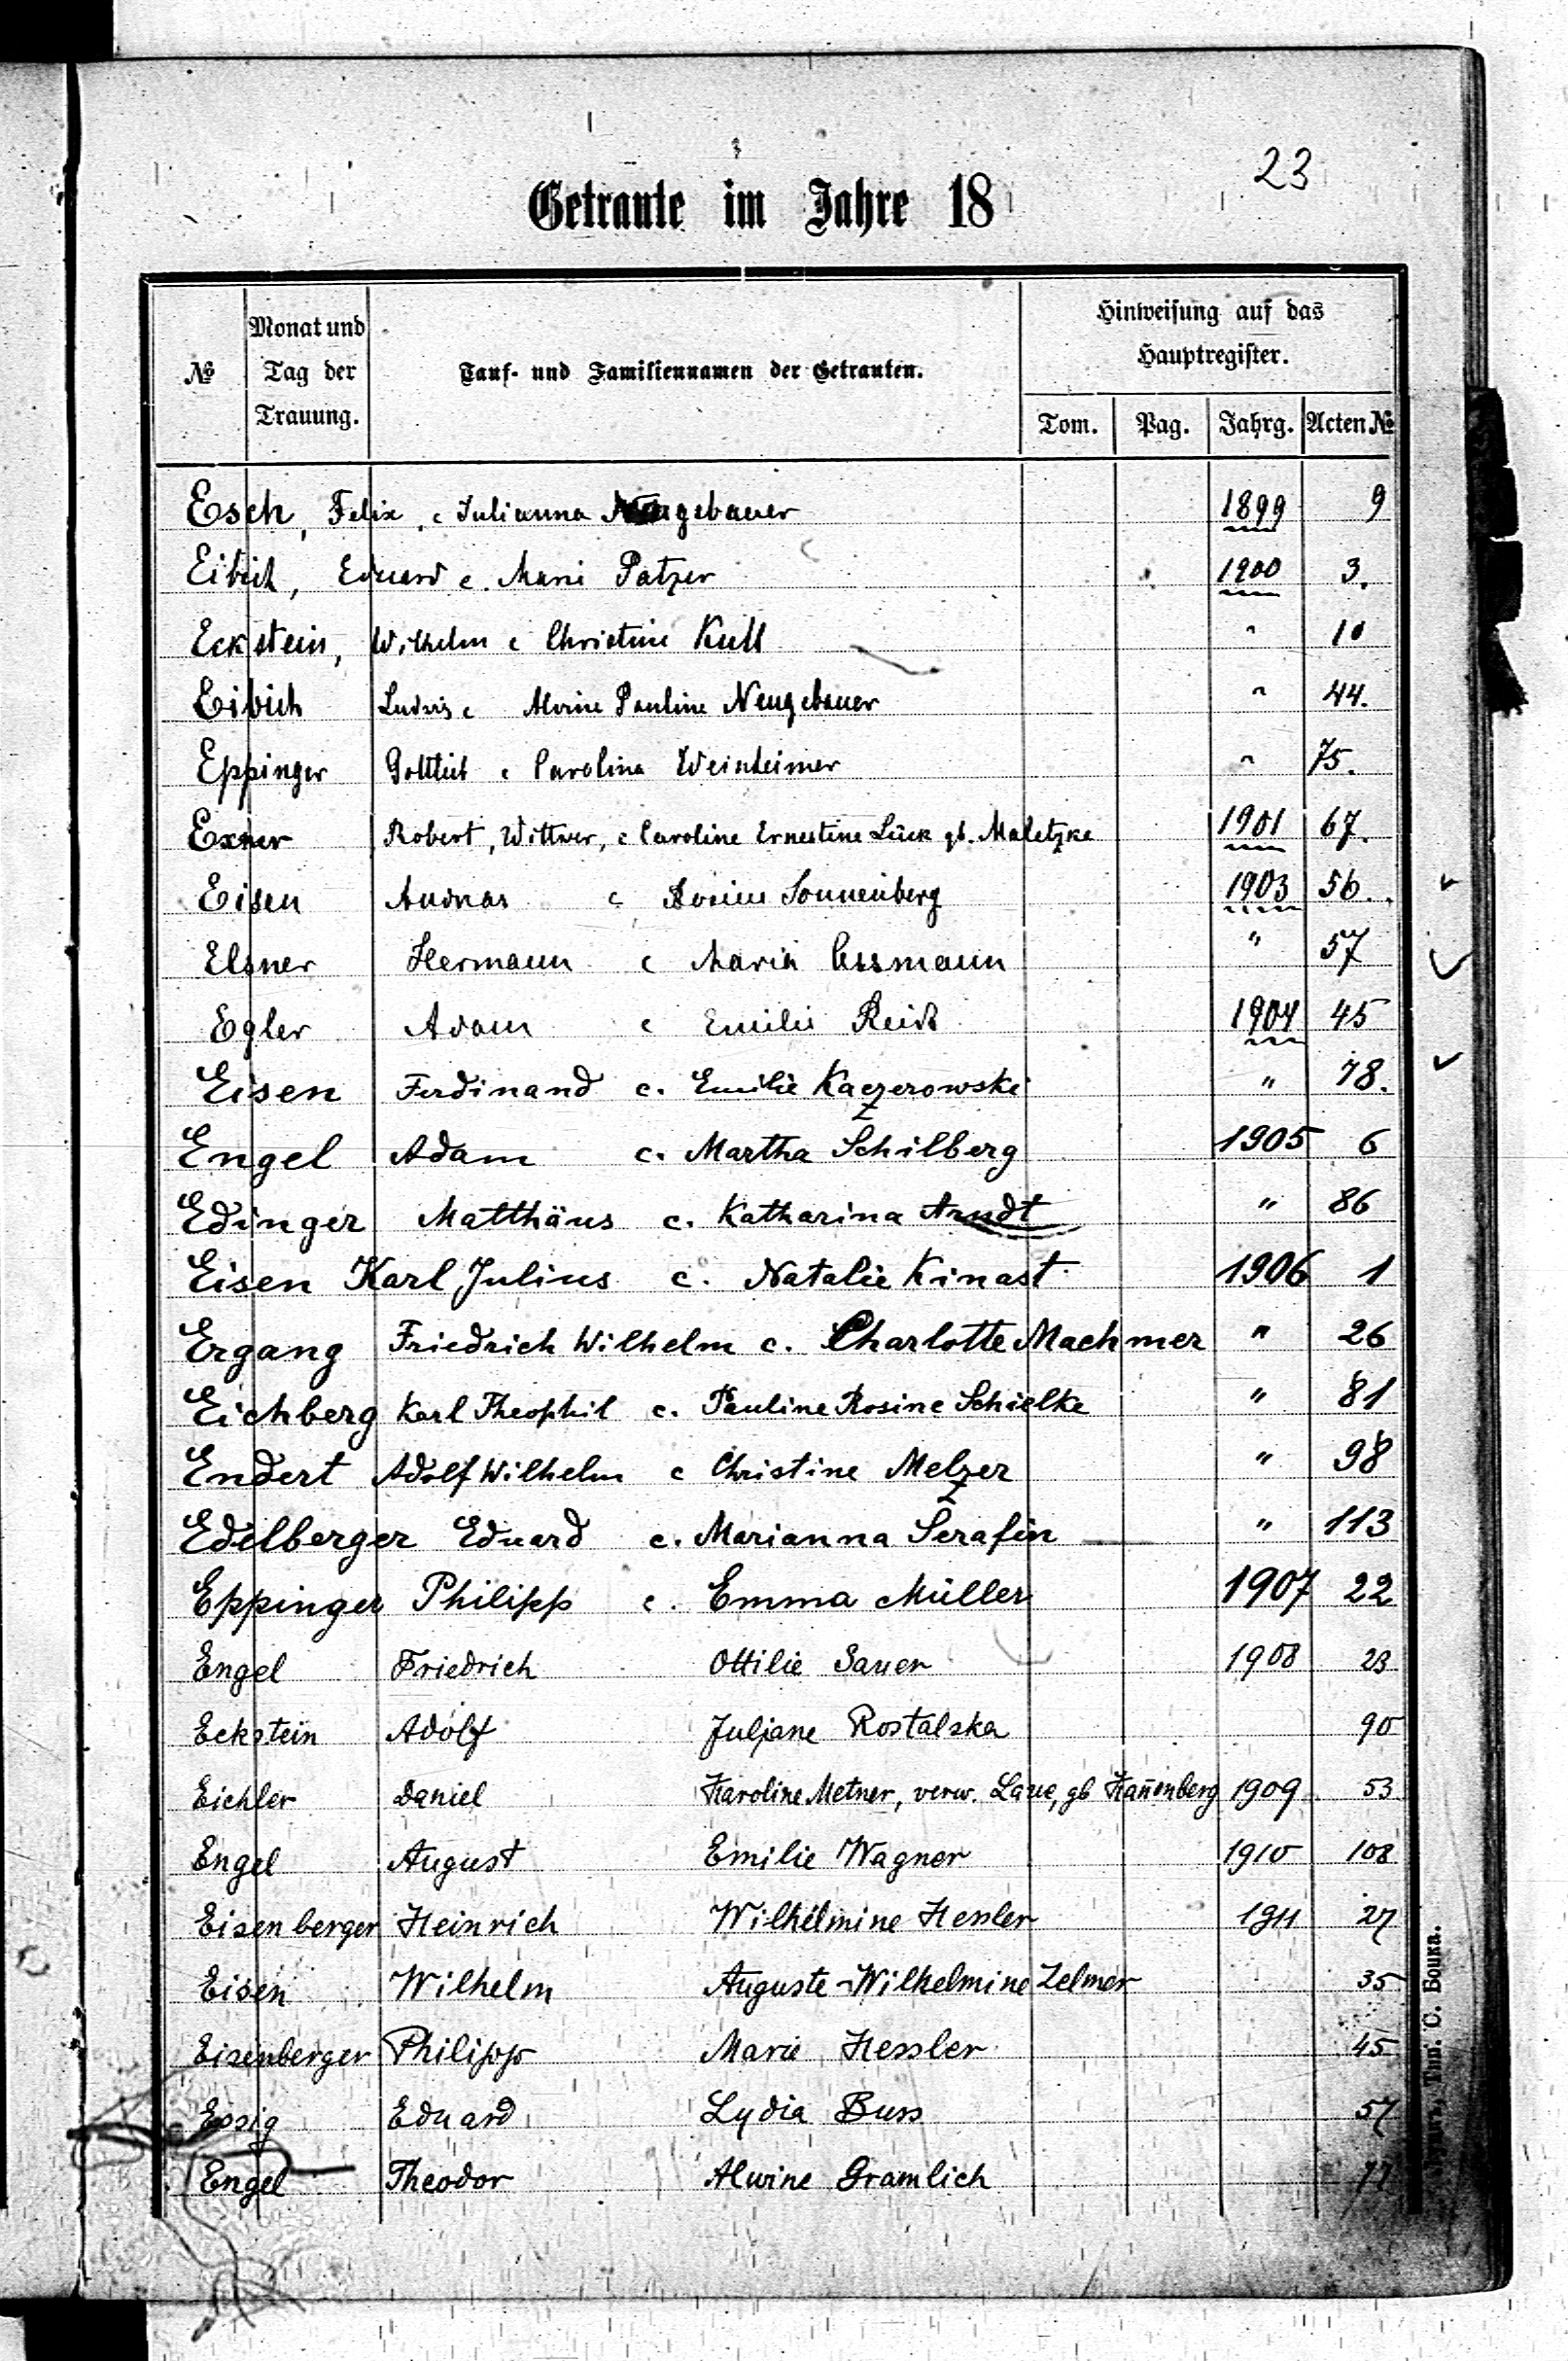 23
Getraute im Jahre 18
№ | Monat und Tag der Trauung. | Tauf- und Familiennamen der Getrauten. | Hinweisung auf das Hauptregister. | Tom. | Pag. | Jahrg. | Acten №
Esch, Felix, c Julianna Neugebauer 1899 9
Eibich, Eduard c. Marie Patzer 1900 3.
Eckstein, Wilhelm c Christine Kull " 10
Eibich Ludwig c Alvine Pauline Neugebauer " 44.
Eppinger Gottlieb c Carolina Weinheimer " 75.
Exner Robert, Wittwer, c Caroline Ernestine Lück gb. Maletzke 1901 67.
Eisen Andreas c Rosine Sonnenberg 1903 56.
Elsner Hermann c Maria Assmann " 57
Egler Adam c Emilie 1904 45
Eisen Ferdinand c. Emilie Kaczerowski " 78.
Engel Adam c. Martha Schilberg 1905 6
Edinger Matthäus c. Katharina Arndt " 86
Eisen Karl Julius c. Natalie Kinast 1906 1
Ergang Friedrich Wilhelm c. Charlotte Machmer " 26
Eichberg Karl Theophil c. Pauline Rosine Schielke " 81
Endert Adolf Wilhelm c Christine Melzer " 98
Edelberger Eduard c. Marianna Serafin " 113
Eppinger Philipp c. Emma Müller 1907 22
Engel Friedrich Ottilie Sauer 1908 23
Eckstein Adolf Juljane Rostalska 90
Eichler Daniel Karoline Metner, verw. Laue, gb Kan̄enberg 1909 53
Engel August Emilie Wagner 1910 108
Eisenberger Heinrich Wilhelmine Hessler 1911 27
Eisen Wilhelm Auguste-Wilhelmine Zelmer 35
Eisenberger Philipp Marie Hessler 45
Essig Eduard Lydia Buss 57
Engel Theodor Alwine Gramlich 77
Тип. С. Бошка.